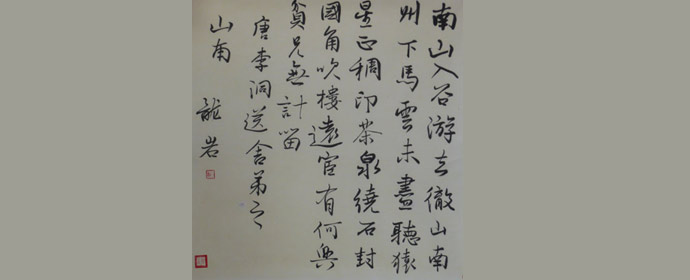 南山入谷游去徹山南
州下馬雲未盡聽猿
星正稠印茶泉繞石封
國角吹樓遠宦有何興
貧兄無計留
唐李洞送舍弟之
山南
龍岩